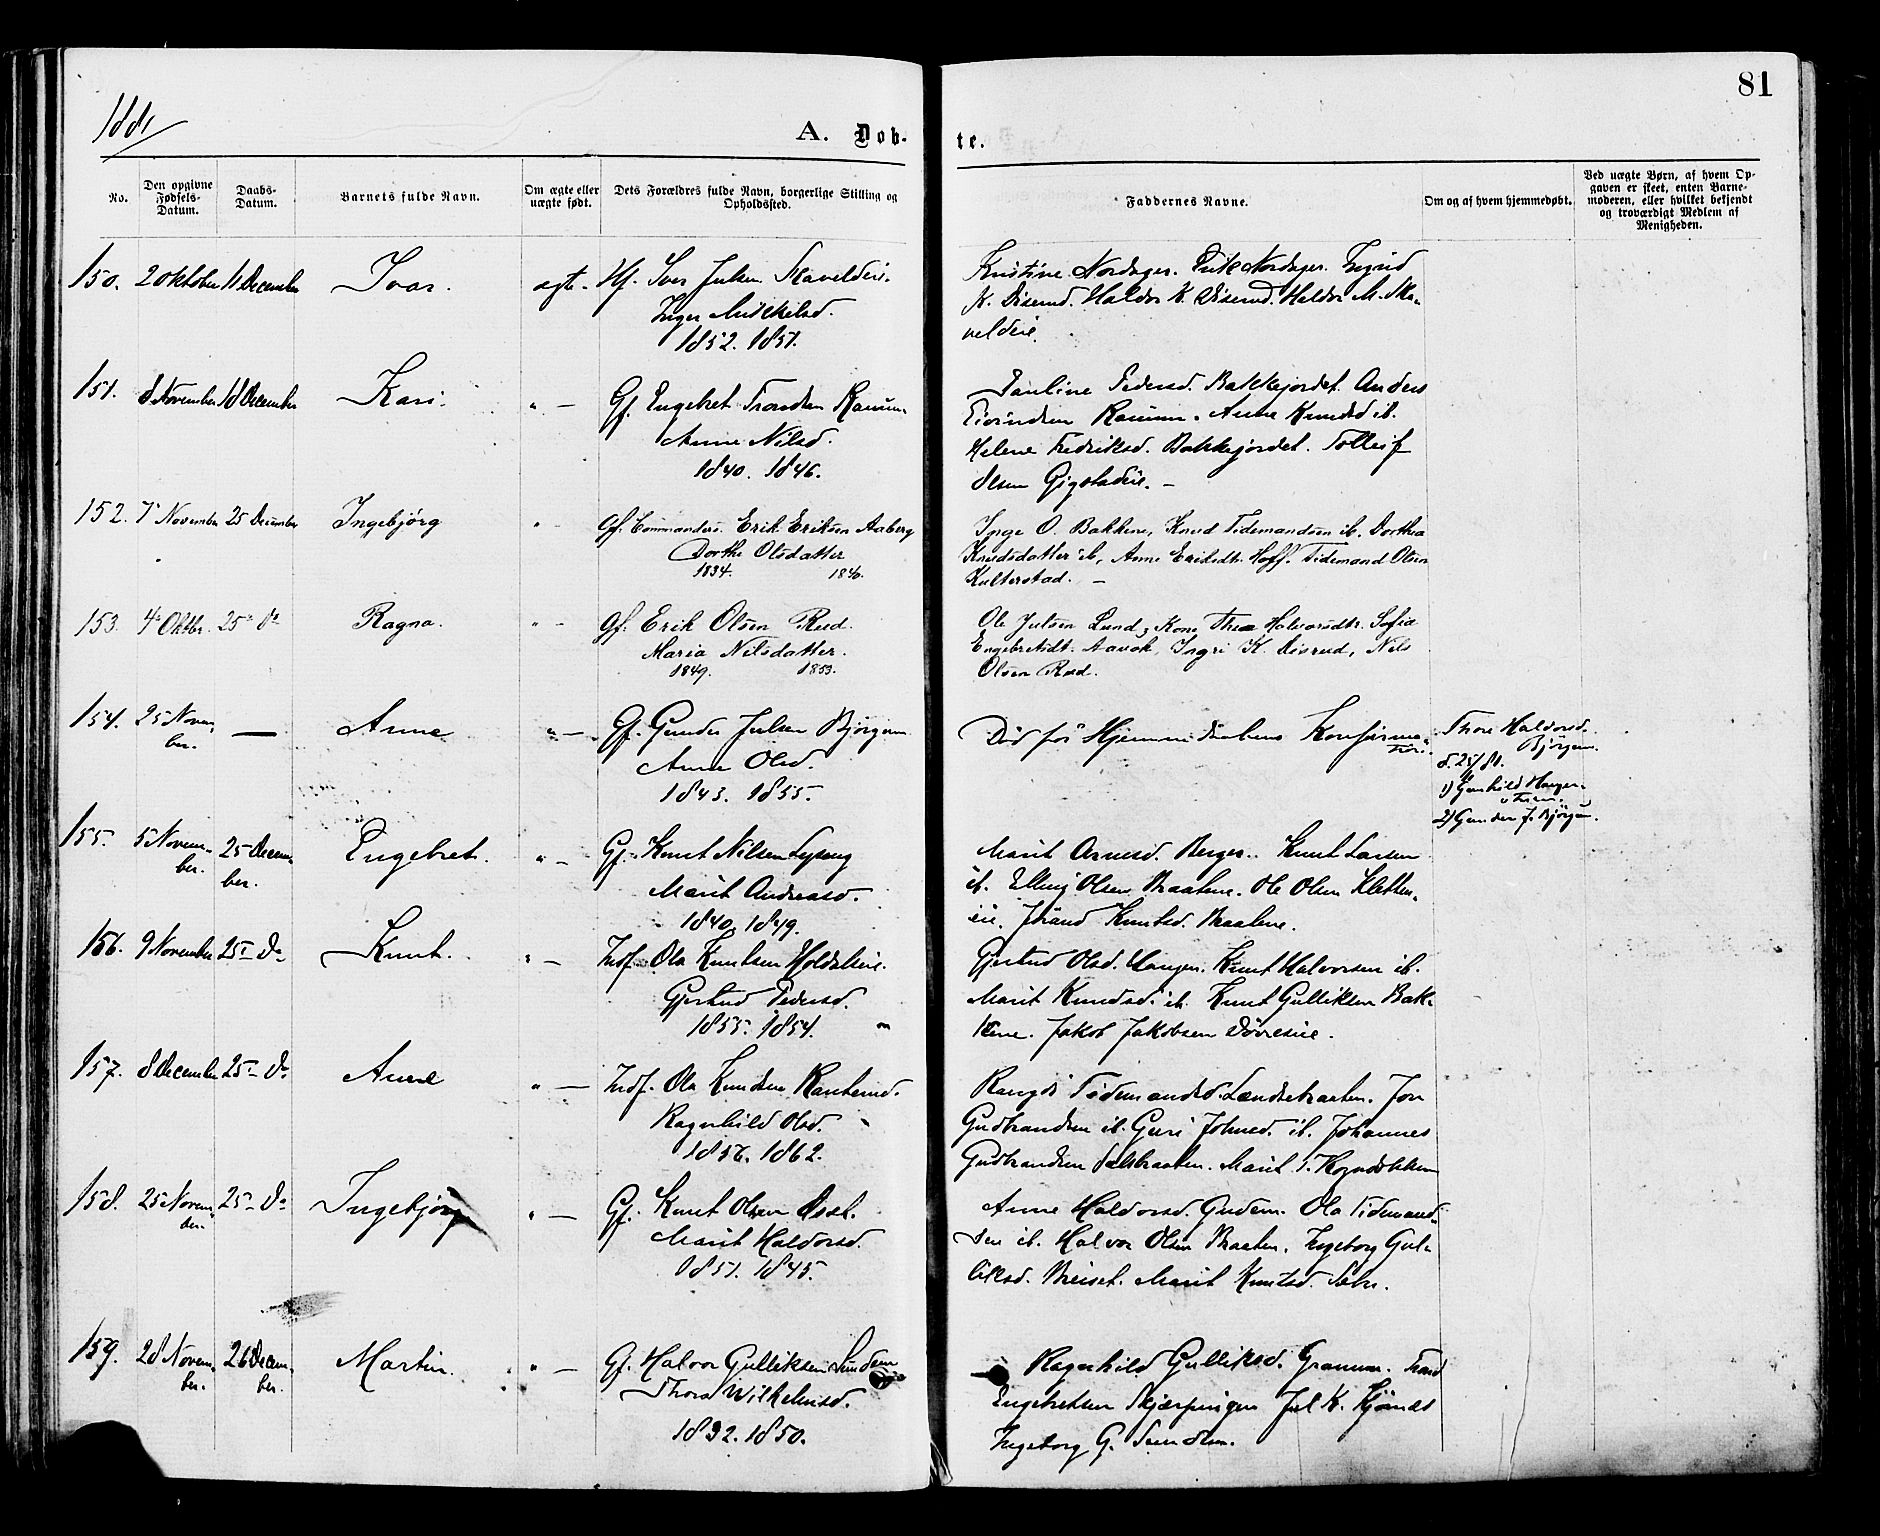 81
1881
A. Døb-
te.
No.
Den opgivne
Fødsels-
Datum.
Daabs-
Datum.
Barnets fulde Navn.
Om ægte eller
uægte født.
Dets Forældres fulde Navn, borgerlige Stilling og
Opholdssted.
Faddernes Navne.
Om og af hvem hjemmedøbt.
Ved uægte Børn, af hvem Op-
gaven er skeet, enten Barne-
moderen, eller hvilket bekjendt
og troværdigt Medlem af
Menigheden.
150. 2 Oktober 11 December Ivar. ægte. Hf. Iver Julsen
Inger Mikkelsd.
1852. 1851.
Kristine Nordager. Nordager. Ingrid
K. Disrud. Haldor K. Disrud. Haldor M. Ska-
veldeie.
151. 8 November 18 December Kari. " — Gf. Engebret Trondsen Ranum.
Anne Nilsd.
1840. 1846.
Pauline Pedersd. Bakkejordet. Anders
Eivindsen Ranum. Anne Knudsd ib.
Helene Fredriksd. Bakkejordet. Tolleif
Olsen Gigstadeie. —
152. 7 November 25 December Ingebjørg " - Gf. Erik Eriksen Aaberg
Dorthe Olsdatter
1834. 1840.
Inge O. Bakkene, Knud Tidemandsen ib. Dorthea
Knudsdatter ib, Anne Eriksdtr. Hoff. Tidemand Olsen
Kulterstad. —
153. 4 Oktbr. 25 do Ragna. " - Gf. Erik Olsen Rud.
Maria Nilsdatter.
1849. 1853.
Ole Julsen Lund, Kone Thea Halvorsdtr. Sofia
Engebretsdt. Aavok, Ingri K. Disrud, Nils
Olsen Rud.
154. 25 Novem-
ber. — Anne " — Gf. Gunder Julsen Bjørgum
Anne Olsd.
1843. 1855.
Død før Hjemmedaabens Konfirma-
tion.
Thore Haldorsd.
Bjørgum.
1) Gunhild Haugen
2) Gunder J. Bjørgum.
155. 5 Novem-
ber. 25 Decem-
ber. Engebret. " — Gf. Knut Nilsen
Marit Andreasd.
1840. 1849.
Marit Arnesd. Berger. Knut Larsen
ib. Elling Olsen Braatene. Ole Olsen Kletten-
eie. Jørand Knutsd. Braatene.
156. 9 November 25 do Knut. " — Indf. Ola Knutsen
Gjertrud Pedersd.
1855. 1854.
Gjertrud Olsd. Haugen. Knut Halvorsen ib.
Marit Knudsd. ib. Knut Gulliksen Bak-
kene. Jakob Jakobsen
157. 8 December 25 do Anne " — Indf. Ola Knudsen
Ragnhild Olsd.
1856. 1862.
Rangdi Tidemandsd. Jon
Gudbrandsen ib. Guri Johnsd. ib. Johannes
Gudbrandsen Marit T.
158. 25 Novem-
ber. 25 do Ingebjørg " — Gf. Knut Olsen
Marit Haldorsd.
1851. 1845.
Anne Haldorsd. Gudem. Ola Tidemand-
sen ib. Halvor Olsen Braaten. Ingeborg Gul-
liksd. Breiset. Marit Knutsd.
159. 28 Novem-
ber. 26 Decem-
ber. Martin. " — Gf. Halvor Gulliksen
Thora Wilhelmsd.
1832. 1850.
Ragnhild Gulliksd. Granum. Trond
Engebretsen Skjærpingen Jul K.
Ingeborg G.